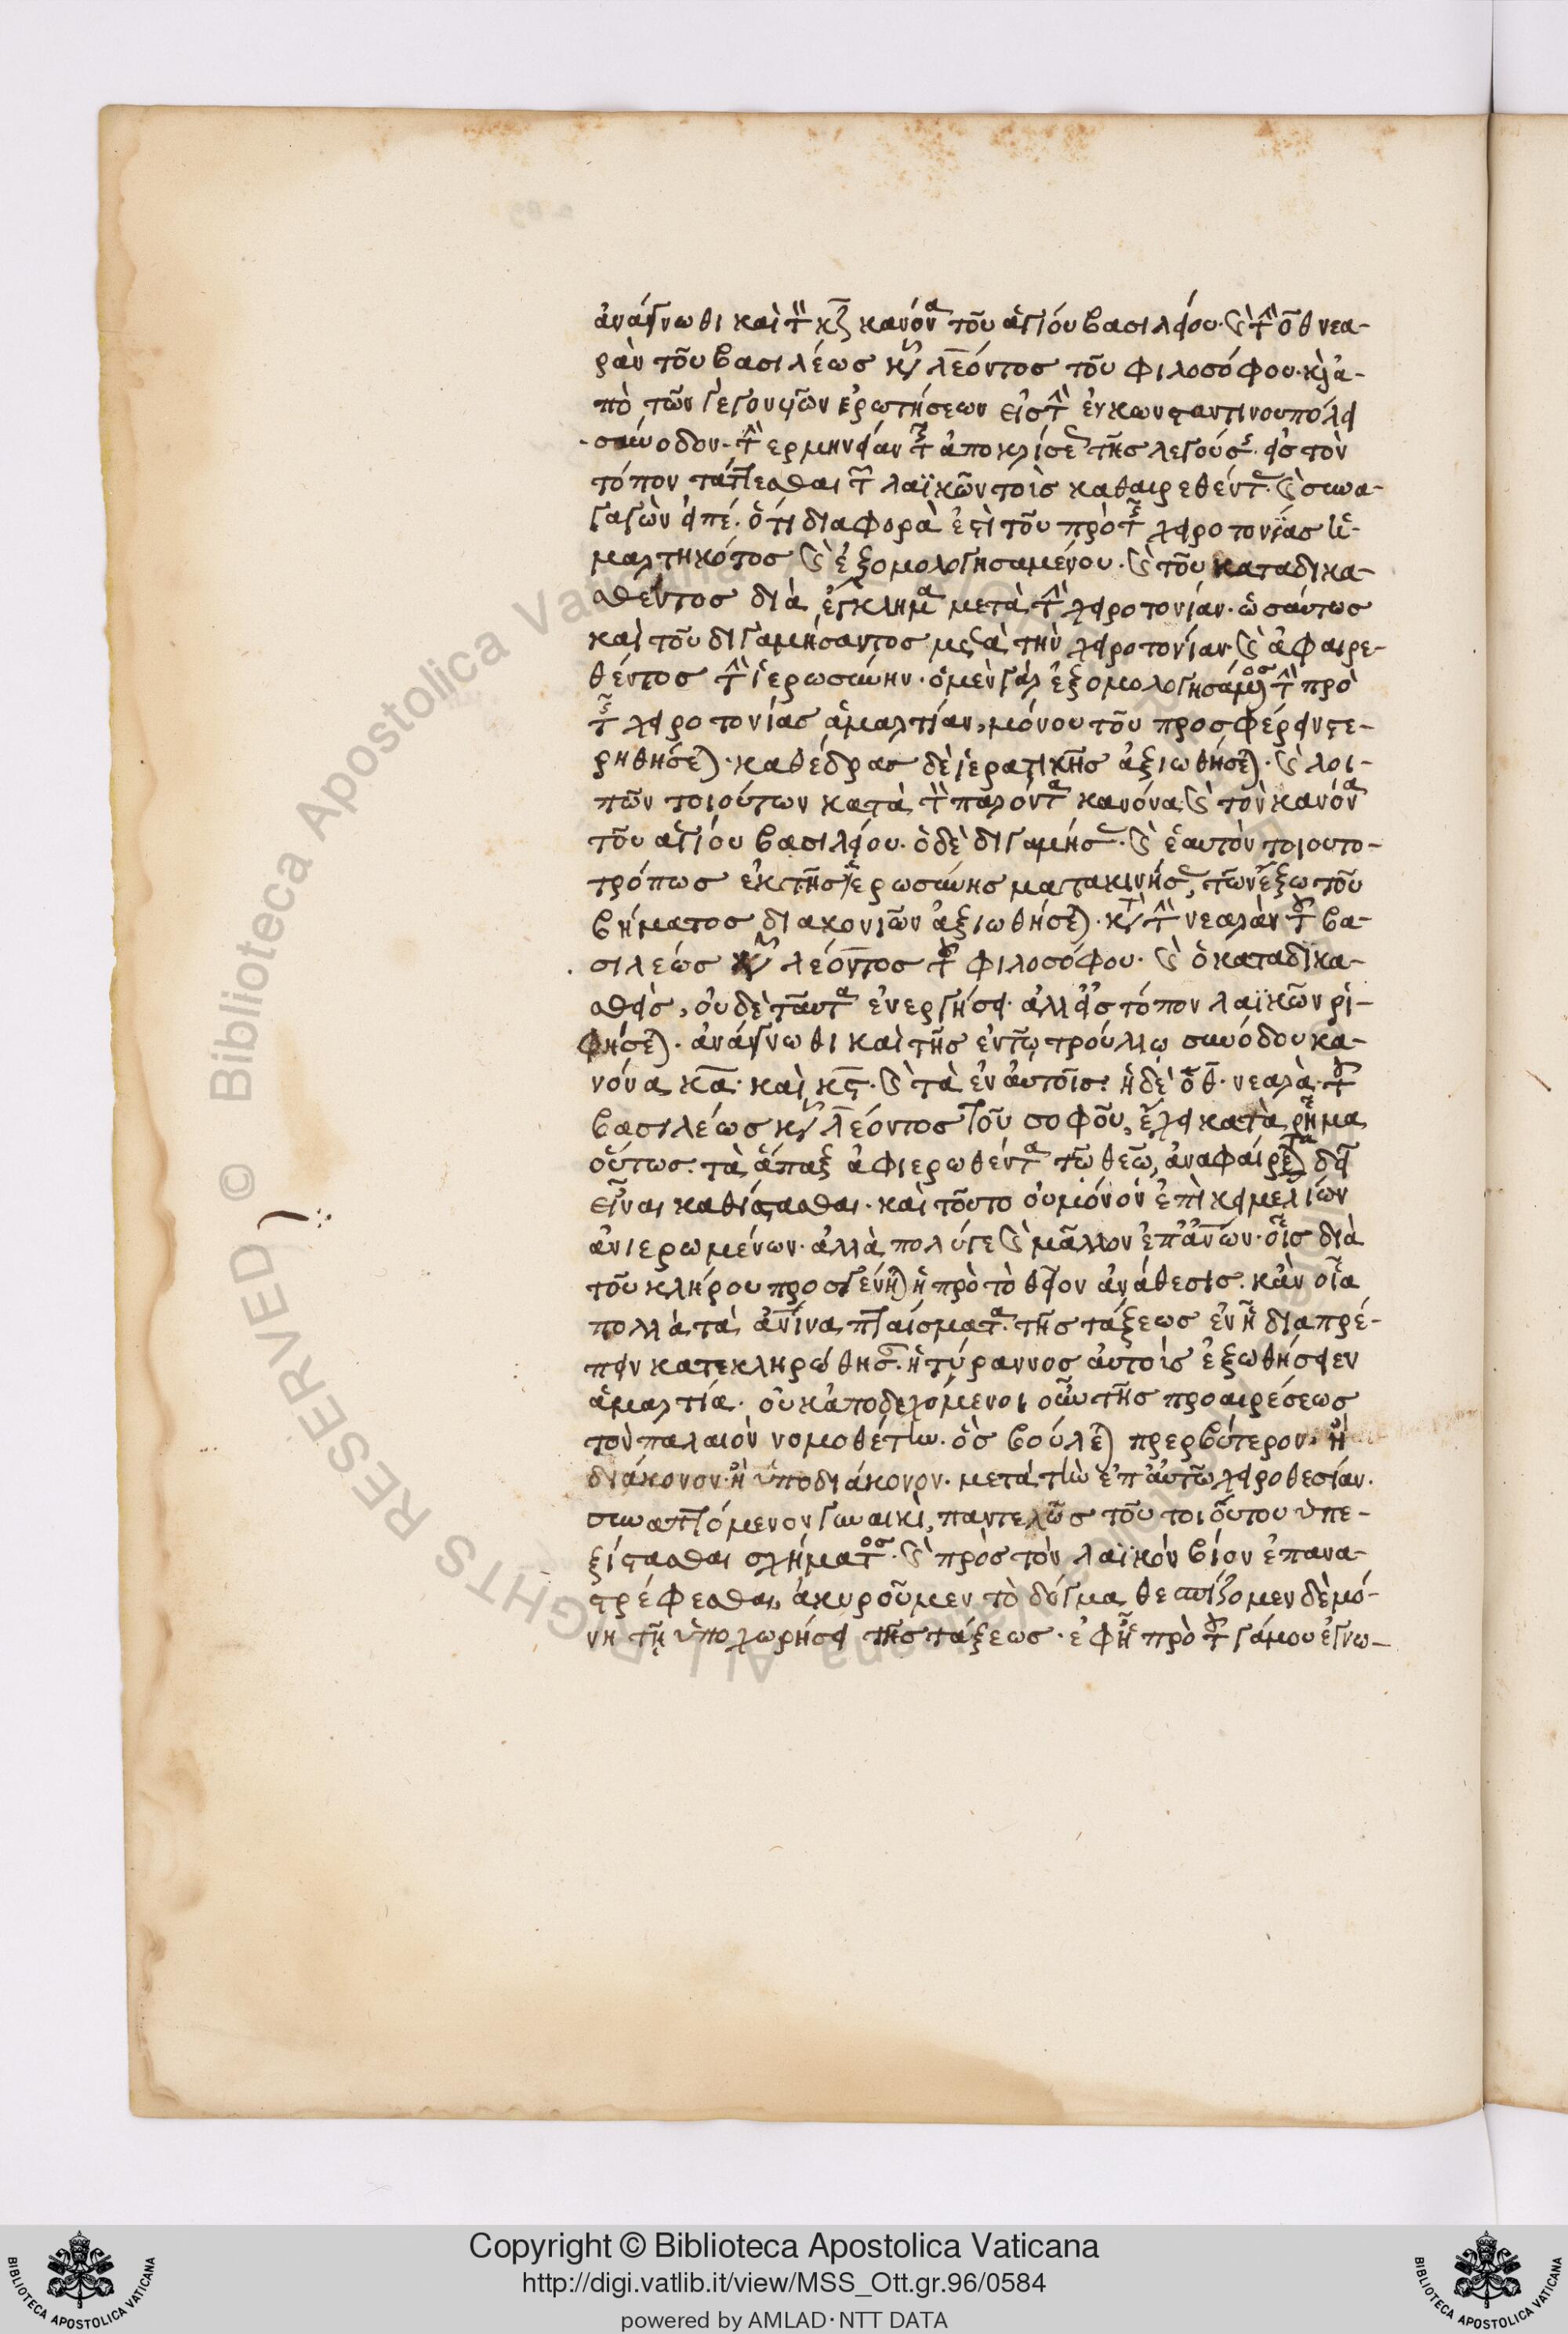 ἀνάγνωθι καὶ τὸν κζ κανόνα τοῦ ἁγίου βασιλείου. καὶ τὴν οθ νεα-
ρὰν τοῦ βασιλέως κυροῦ λέοντος τοῦ φιλοσόφου. καὶ ἀ-
πὸ τῶν γεγονυιῶν ἐρωτήσεων εἰς τὴν ἐν κωνσταντινουπόλει
σύνοδον. τὴν ερμηνείαν τῆς ἀποκλίσεως τῆς λεγούσης. εἰς τὸν
τόπον τάττεσθαι τῶν λαϊκῶν τοὺς καθαιρεθέντας. καὶ συνα-
γαγὼν εἰπέ. ὅτι διαφορὰ ἐστὶ τοῦ πρὸ τῆς χειροτονίας ἡ-
μαρτηκότος καὶ ἐξομολογησαμένου. καὶ τοῦ καταδικα-
σθέντος διὰ ἔγκλημα μετὰ τὴν χειροτονίαν. ὡσαύτως
καὶ τοῦ διγαμήσαντος μετὰ τὴν χειροτονίαν. καὶ ἀφαιρε-
θέντος τὴν ἱερωσύνην. ὁ μὲν γὰρ ἐξομολογησάμενος τὴν πρὸ
τῆς χειροτονίας ἁμαρτίαν, μόνου τοῦ προσφέρειν στε-
ρηθήσεται. καθέδρας δὲ ἱερατικῆς ἀξιωθήσεται. καὶ λοι-
πῶν τοιούτων κατὰ τὸν παρόντα κανόνα καὶ τὸν κανόνα
τοῦ ἁγίου βασιλείου. ὁ δὲ διγαμήσας. καὶ ἑαυτὸν τοιουτο-
τρόπως ἐκ τῆς ἱερωσύνης μετακινήσας, τῶν ἔξω τοῦ
βήματος διακονιῶν ἀξιωθήσεται. κατὰ τὴν νεαρὰν τοῦ βα-
σιλέως κυροῦ λέοντος τοῦ φιλοσόφου. καὶ ὁ καταδικα-
σθείς, οὐδὲ ταῦτα ἐνεργήσει. ἀλλ' εἰς τόπον λαϊκῶν ρι-
φήσεται. ἀνάγνωθι καὶ τῆς ἐν τῶ τρούλλω συνόδου κα-
νόνα κα. καὶ κϛ. καὶ τὰ ἐν αὐτοῖς. ἡ δὲ οθ. νεαρὰ τοῦ
βασιλέως κυροῦ λέοντος τοῦ σοφοῦ, ἔχει κατὰ ρῆμα
οὕτως. τὰ ἅπαξ ἀφιερωθέντα τῶ θεῶ, ἀναφαίρετα δεῖ
εἶναι καθίστασθαι. καὶ τοῦτο οὐ μόνον ἐπὶ κειμελίων
ἀνιερωμένων. ἀλλὰ πολύγε καὶ μᾶλλον ἐπ' ἀνθρώπων. οἷς διὰ
τοῦ κλήρου προσγένηται ἡ πρὸς τὸ θεῖον ἀνάθεσις. κἂν οἷα
πολλὰ τὰ ἀνθρώπινα πταίσματα. τῆς τάξεως ἐν ἧ διαπρέ-
πειν κατεκληρώθησαν. ἡ τύραννος αὐτοὺς ἐξωθήσειεν
ἁμαρτία. οὐκ ἀποδεχόμενοι οὖν τῆς προαιρέσεως
τὸν παλαιὸν νομοθέτην. ὃς βούλεται πρεσβύτερον. ἢ
διάκονον. ἢ ὑποδιάκονον. μετὰ τὴν ἐπ' αὐτῶ χειροθεσίαν.
συναπτόμενον γυναικὶ, παντελῶς τοῦ τοιούτου ὑπε-
ξίστασθαι σχήματος. καὶ πρὸς τὸν λαϊκὸν βίον ἐπανα-
στρέφεσθαι, ἀκυροῦμεν τὸ δόγμα, θεσπίζομεν δὲ μό-
νη τῆ ὑποχωρήσει τῆς τάξεως. ἐφ' ἧς πρὸ τοῦ γάμου ἐγνω-
Copyright © Biblioteca Apostolica Vaticana
http://digi.vatlib.it/view/MSS_Ott.gr.96/0584
powered by AMLAD·NTT DATA
BIBLIOTECA APOSTOLICA VATICANA
BIBLIOTECA APOSTOLICA VATICANA